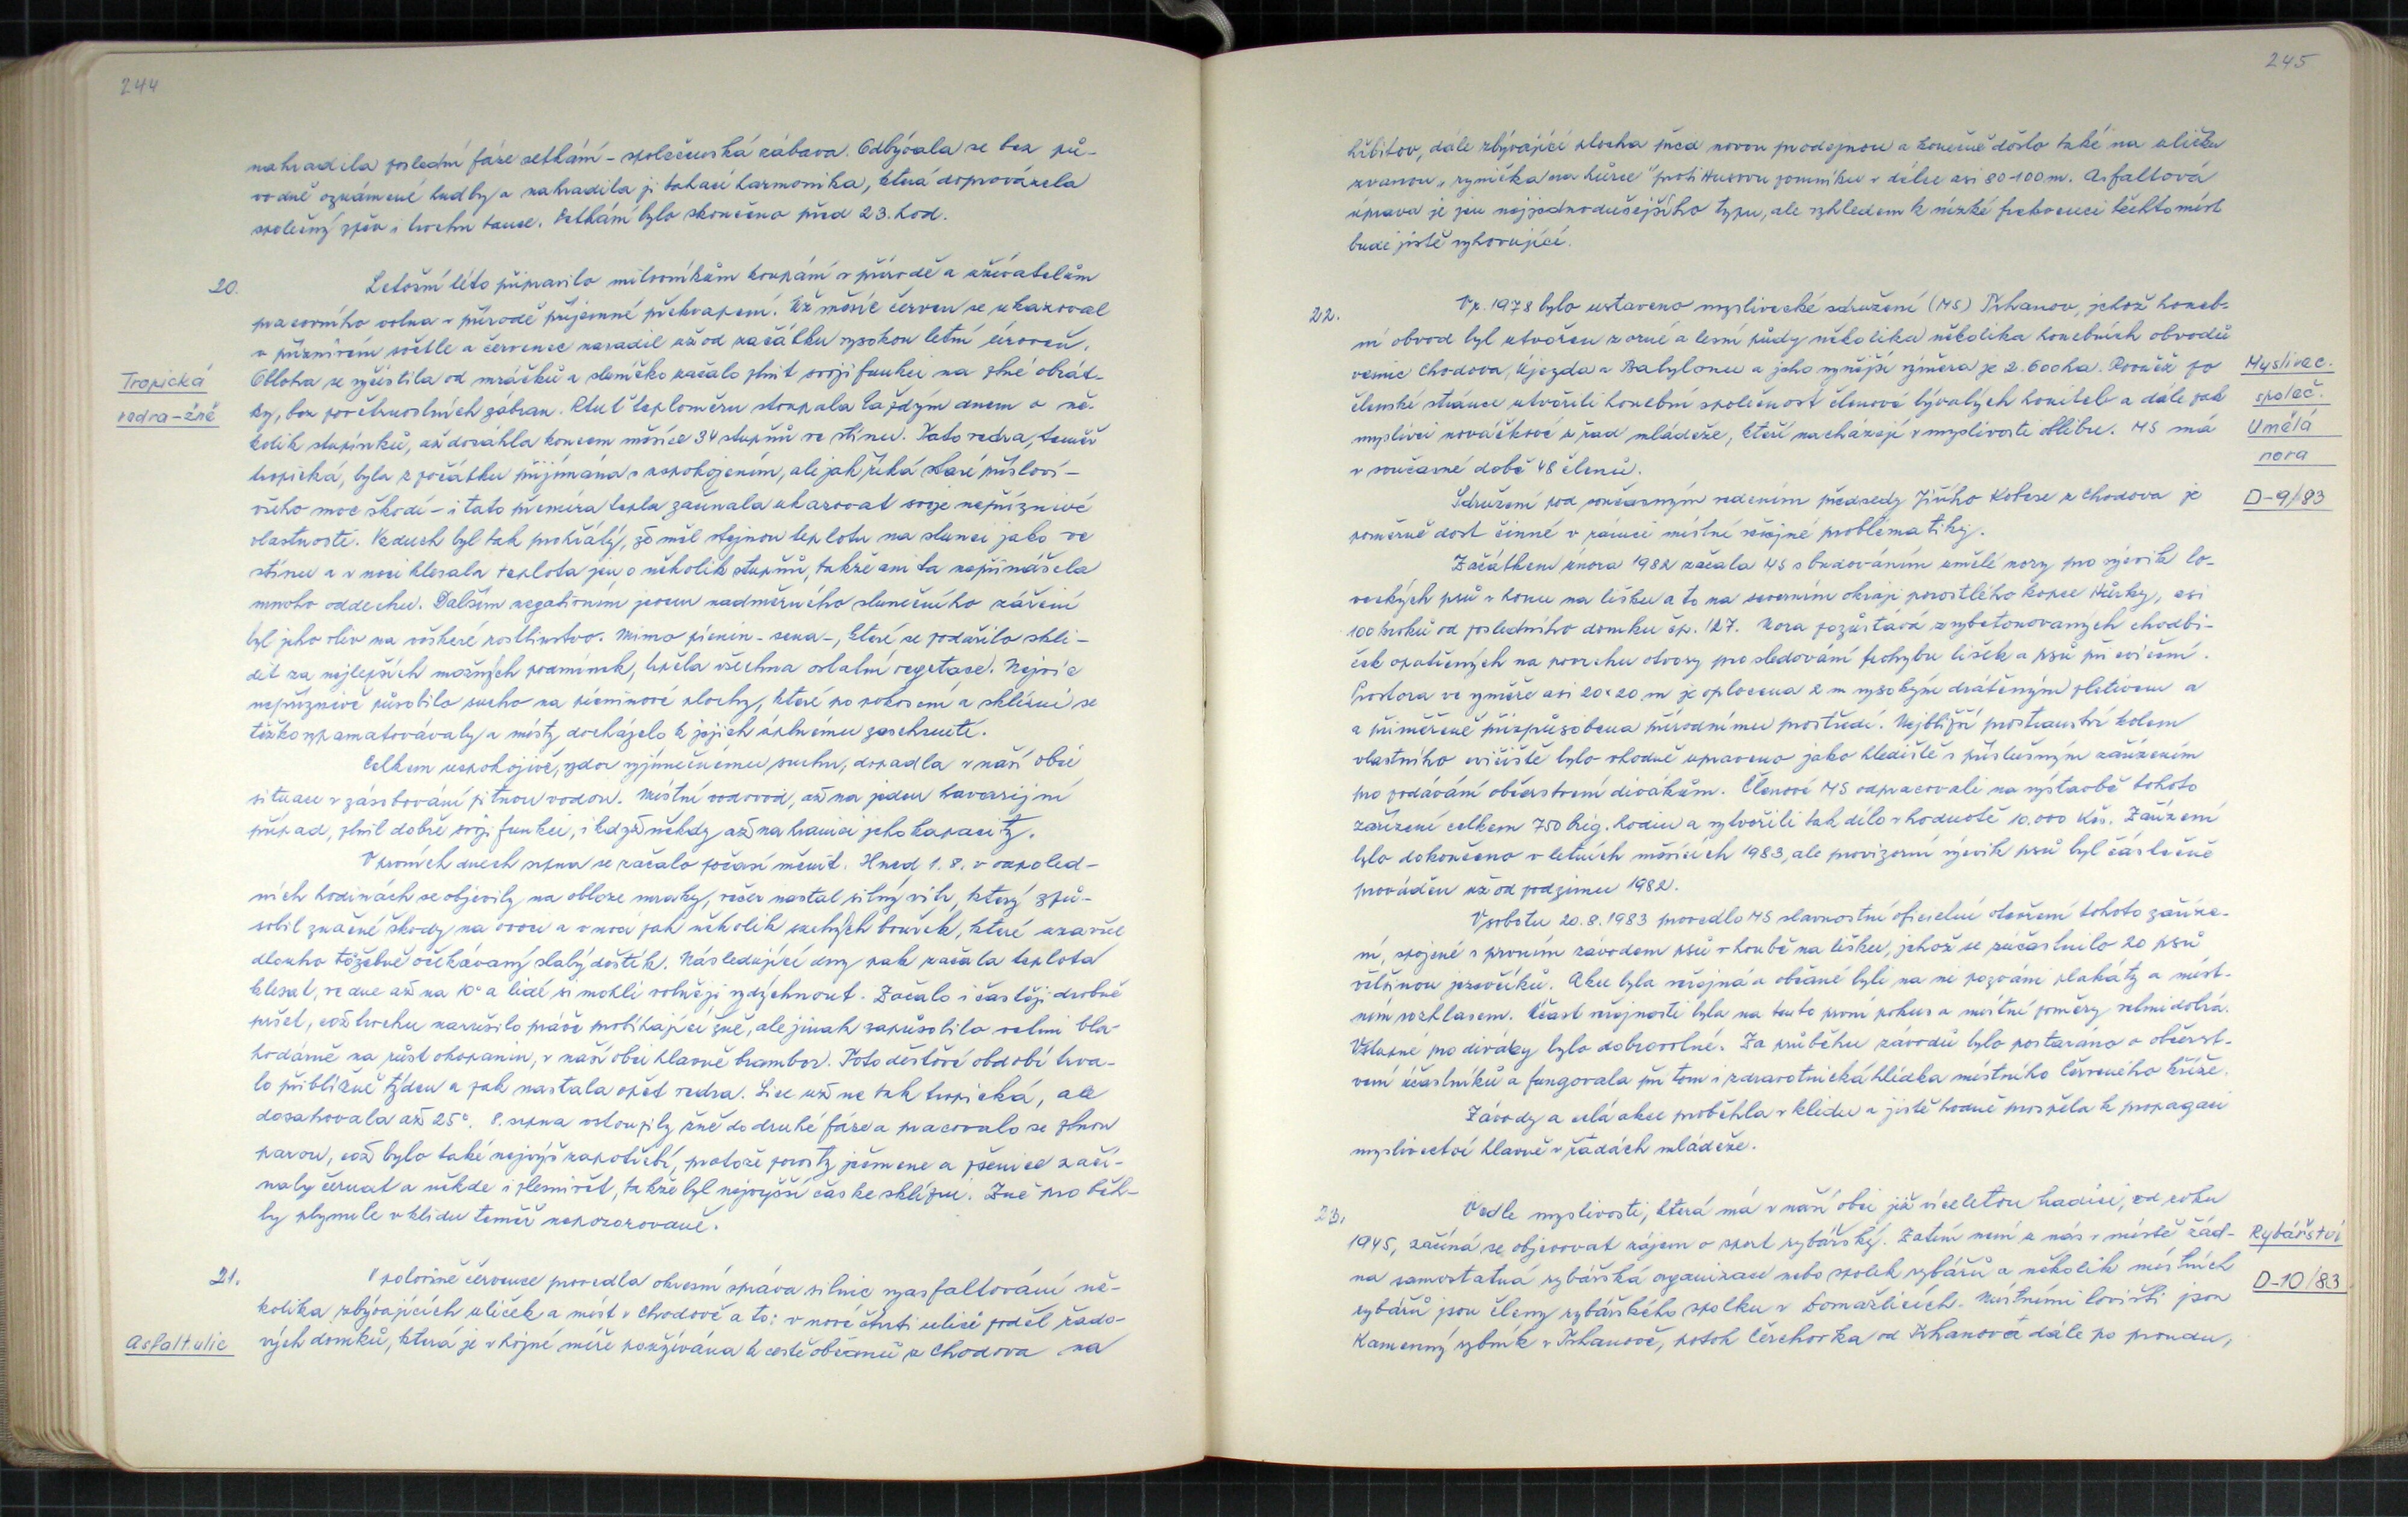 244
nahradila poslední fáze setkání - společenská zábava. Odbývala se bez pů-
vodně oznámené hudby a nahradila ji tahací harmonika, která doprovázela
společný zpěv i trochu tance. Setkání bylo skončeno před 23. hod.
20. Letošní léto připravilo milovníkům koupání v přírodě a uživatelům
pracovního volna v přírodě příjemné překvapení. Už měsíc červen se ukazoval
v příznivém světle a červenec nasadil už od začátku vysokou letní úroveň.
Obloha se vyčistila od mráčků a sluníčko začalo plnit svoji funkci na plné obrát-
Tropická
vedra - žně
ky, bez povětrnostních zábran. Rtuť teploměru stoupala každým dnem o ně-
kolik stupínků, až dosáhla koncem měsíce 34 stupňů ve stínu. Tato vedra, téměř
tropická, byla z počátku přijímána s uspokojením, ale jak říká staré přísloví -
všeho moc škodí - i tato přemíra tepla začínala ukazovat svoje nepříznivé
vlastnosti. Vzduch byl tak prohřátý, že měl stejnou teplotu na slunci jako ve
stínu a v noci klesala teplota jen o několik stupňů, takže ani ta nepřinášela
mnoho oddechu. Dalším negativním jevem nadměrného slunečního záření
byl jeho vliv na veškeré rostlinstvo. Mimo pícnin - sena -, které se podařilo skli-
dit za nejlepších možných podmínek, trpěla všechna ostatní vegetace. Nejvíc
nepříznivě působilo sucho na pícninové plochy, které po pokosení a sklizni se
těžko vzpamatovávaly a místy docházelo k jejich úplnému zaschnutí.
Celkem uspokojivě, vzdor výjimečnému suchu, dopadla v naší obci
situace v zásobování pitnou vodou. Místní vodovod, až na jeden havarijní
případ, plnil dobře svoji funkci, i když někdy až na hranici jeho kapacity.
V prvních dnech srpna se začalo počasí měnit. Hned 1. 8. v odpoled-
ních hodinách se objevily na obloze mraky, večer nastal silný vítr, který způ-
sobil značné škody na ovoci a v noci pak několik suchých bouřek, které uzavřel
dlouho toužebně očekávaný slabý deštík. Následující dny pak začala teplota
klesat, ve dne až na 10° a lidé si mohli volněji vydýchnout. Začalo i častěji drobně
pršet, což trochu narušilo práce probíhající žně, ale jinak zapůsobilo velmi bla-
hodárně na růst okopanin, v naší obci hlavně brambor. Toto dešťové období trva-
lo přibližně týden a pak nastala opět vedra. Sice už ne tak tropická, ale
dosahovala až 25°. 8. srpna vstoupily žně do druhé fáze a pracovalo se plnou
parou, což bylo také nejvýš zapotřebí, protože porosty ječmene a pšenice začí-
naly černat a někde i plesnivět, takže byl nejvyšší čas ke sklizni. Žně proběh-
ly plynule v klidu téměř nepozorovaně.
21. V polovině července provedla okresní správa silnic vyasfaltování ně-
kolika zbývajících uliček a míst v Chodově a to: v nové čtvrti ulici podél řado-
Asfalt. ulic
vých domků, která je v hojné míře používána k cestě občanů z Chodova na
245
hřbitov, dále zbývající plocha před novou prodejnou a konečně došlo také na uličku
zvanou "rynička na hůrce" proti Husovu pomníku v délce asi 80-100 m. Asfaltová
úprava je jen nejjednodušejšího typu, ale vzhledem k nízké frekvenci těchto míst
bude jistě vyhovující.
22. V r. 1978 bylo ustaveno myslivecké sdružení (MS) Trhanov, jehož honeb-
ní obvod byl utvořen z orné a lesní půdy několika několika honebních obvodů
vesnic Chodova, Újezda a Babylonu a jeho nynější výměra je 2.600 ha. Rovněž po
Myslivec.
společ.
Umělá
nora
D-9/83
členské stránce utvořili honební společnost členové bývalých honiteb a dále pak
myslivci nováčkové z řad mládeže, kteří nacházejí v myslivosti oblibu. MS má
v současné době 48 členů.
Sdružení pod současným vedením předsedy Jiřího Kobese z Chodova je
poměrně dost činné v rámci místní veřejné problematiky.
Začátkem února 1982 začala MS s budováním umělé nory pro výcvik lo-
veckých psů v honu na lišku a to na severním okraji porostlého kopce Hůrky, asi
100 kroků od posledního domku čp. 127. Nora pozůstává z vybetonovaných chodbi-
ček opatřených na povrchu otvory pro sledování pohybu lišek a psů při cvičení.
Prostora ve výměře asi 20x20 m je oplocena 2 m vysokým drátěným pletivem a
a přiměřeně přizpůsobena přírodnímu prostředí. Nejbližší prostranství kolem
vlastního cvičiště bylo vhodně upraveno jako hlediště s příslušným zařízením
pro podávání občerstvení divákům. Členové MS odpracovali na výstavbě tohoto
zařízení celkem 750 brig. hodin a vytvořili tak dílo v hodnotě 10.000 Kčs. Zařízení
bylo dokončeno v letních měsících 1983, ale provizorní výcvik psů byl částečně
prováděn už od podzimu 1982.
V sobotu 20. 8. 1983 provedlo MS slavnostní oficielní otevření tohoto zaříze-
ní, spojené s prvním závodem psů v honbě na lišku, jehož se zúčastnilo 20 psů
většinou jezevčíků. Akce byla veřejná a občané byli na ni pozváni plakáty a míst-
ním rozhlasem. Účast veřejnosti byla na tento první pokus a místní poměry velmi dobrá.
Vstupné pro diváky bylo dobrovolné. Za průběhu závodů bylo postaráno o občerst-
vení účastníků a fungovala při tom i zdravotnická hlídka místního Červeného kříže.
Závody a celá akce proběhla v klidu a jistě hodně prospěla k propagaci
myslivectví hlavně v řadách mládeže.
23. Vedle myslivosti, která má v naší obci již víceletou tradici, od roku
1945, začíná se objevovat zájem o sport rybářský. Zatím není u nás v místě žád-
Rybářství
D-10/83
na samostatná rybářská organizace nebo spolek rybářů a několik místních
rybářů jsou členy rybářského spolku v Domažlicích. Místními lovišti jsou
Kamenný rybník v Trhanově, potok Čerchovka od Trhanova dále po proudu,